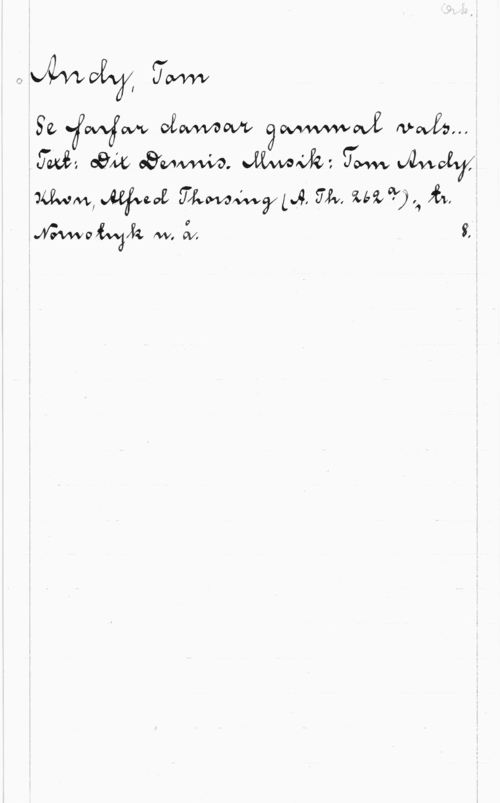 Ork.
Andy, Tom
Se farfar dansar gammal vals...
Text: Dix Dennis. Musik: Tom Andy.
Khvn, Alfred Thorsing (A. Th. 262 a), tr.
Nornotryk u. å. 8.